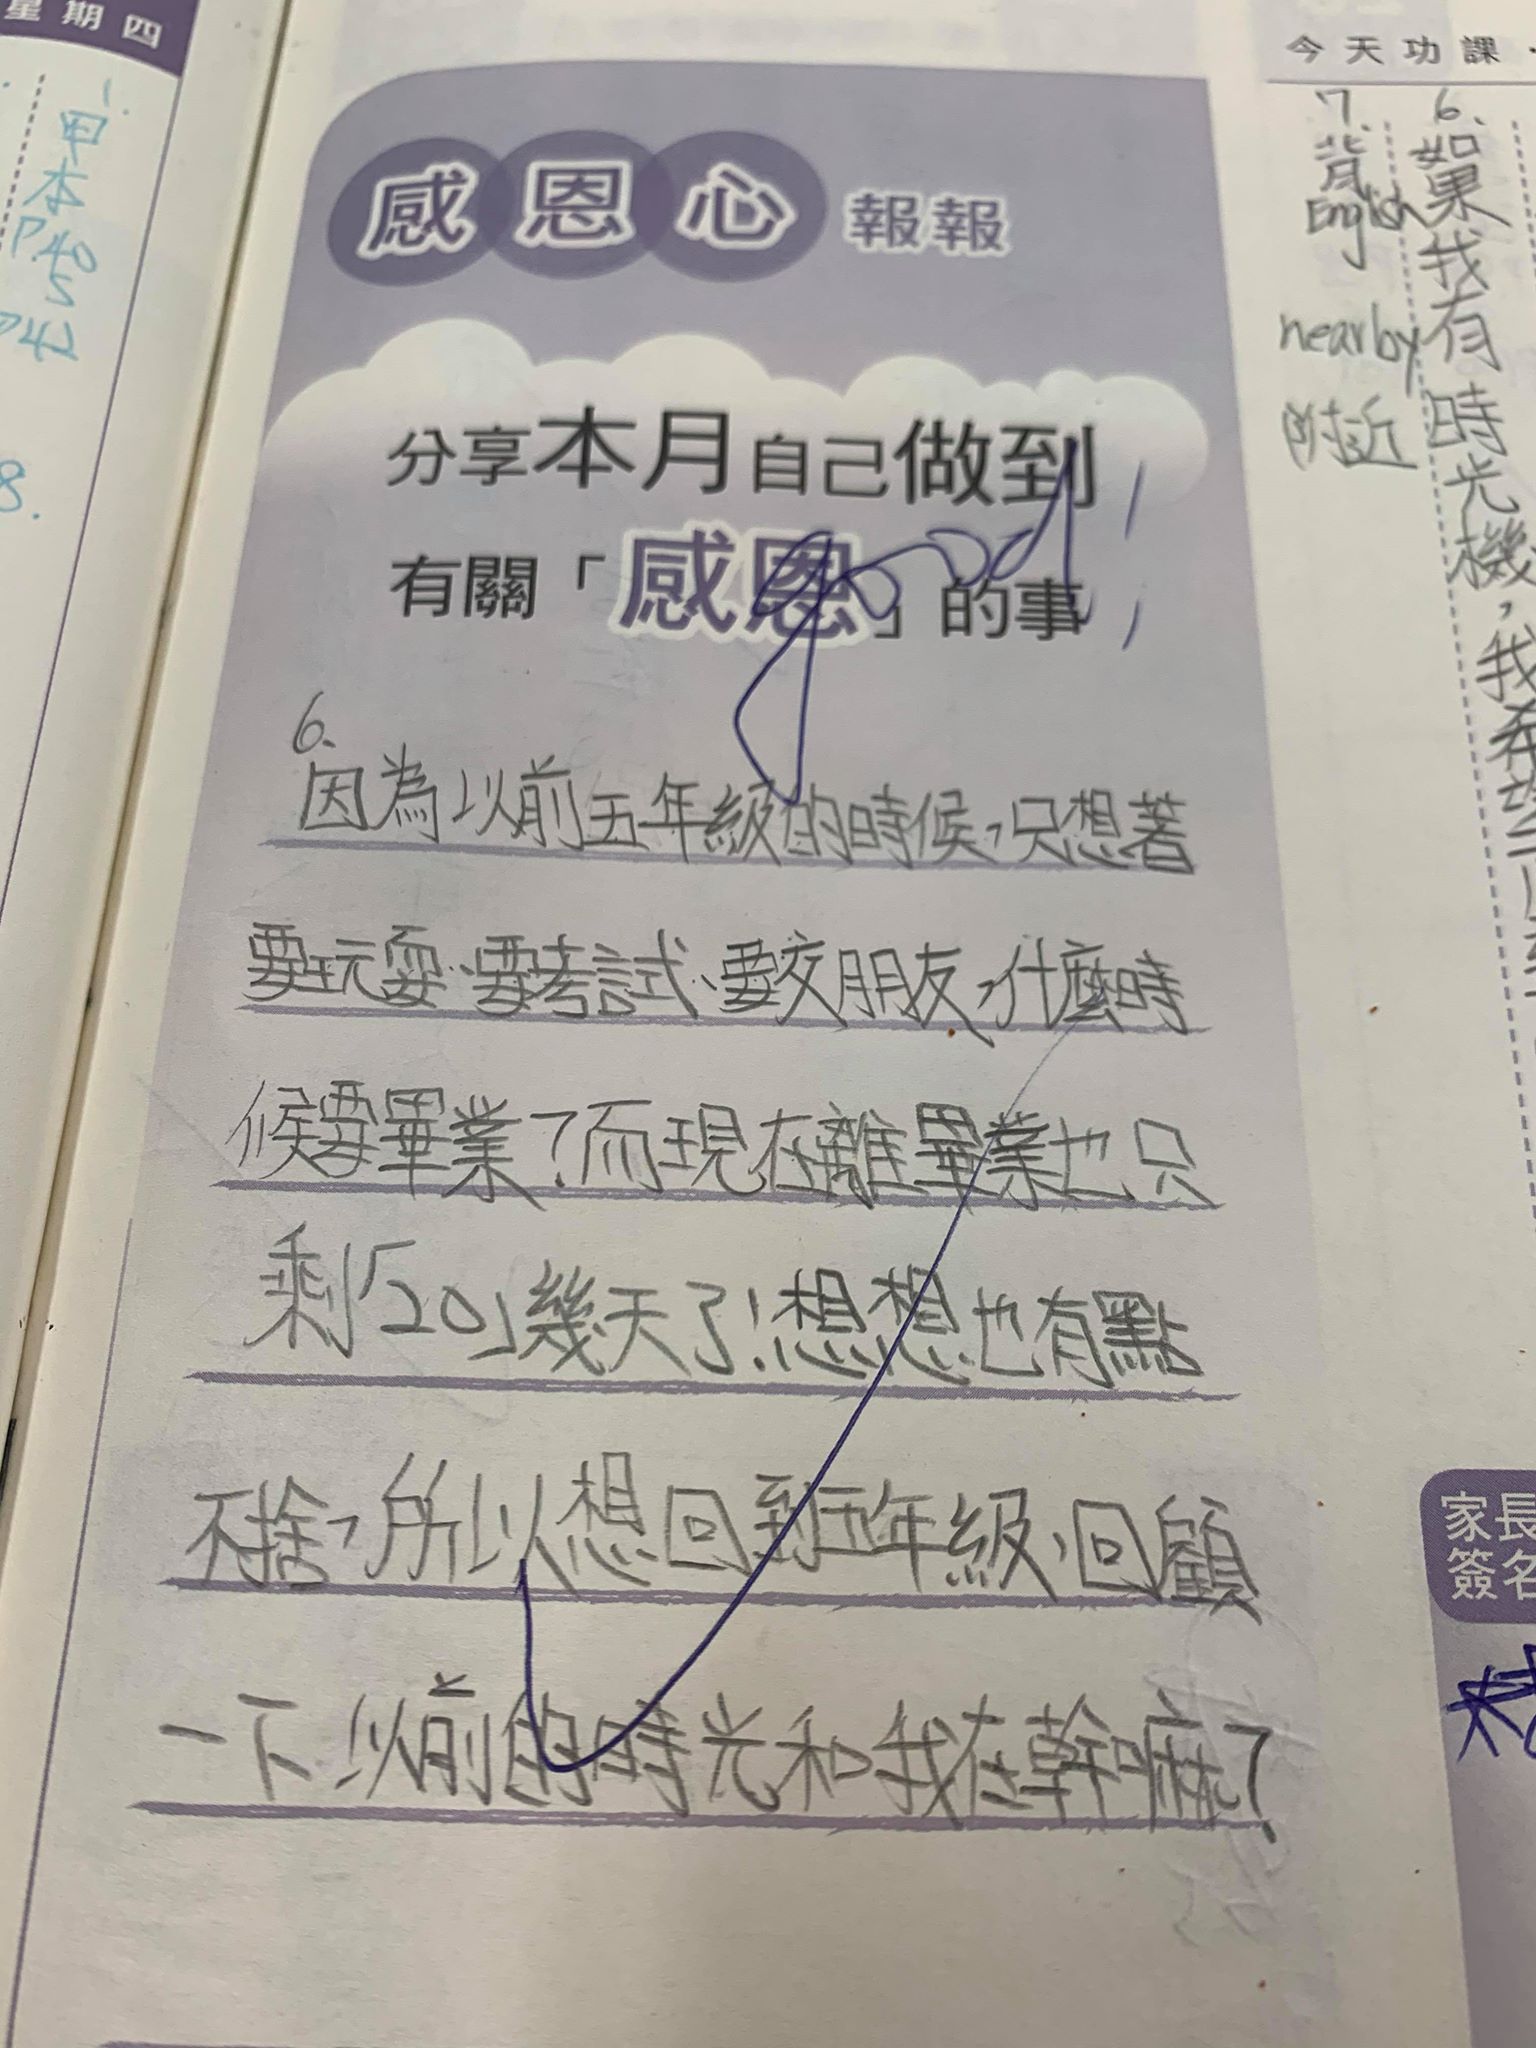 星期四
1.
甲
本
P.40
8.
感恩心報報
分享本月自己做到
有關「感恩」的事
good!!
6.
因為以前五年級的時候,只想著
要玩耍、要考試、要交朋友,什麼時
候要畢業?而現在離畢業也只
剩「20」幾天了!想想也有點
不捨,所以想回到五年級、回顧
一下以前的時光和我在幹嘛?
今天功課
6.如果我有時光機,我希望
7.背English
nearby
附近
家長
簽名